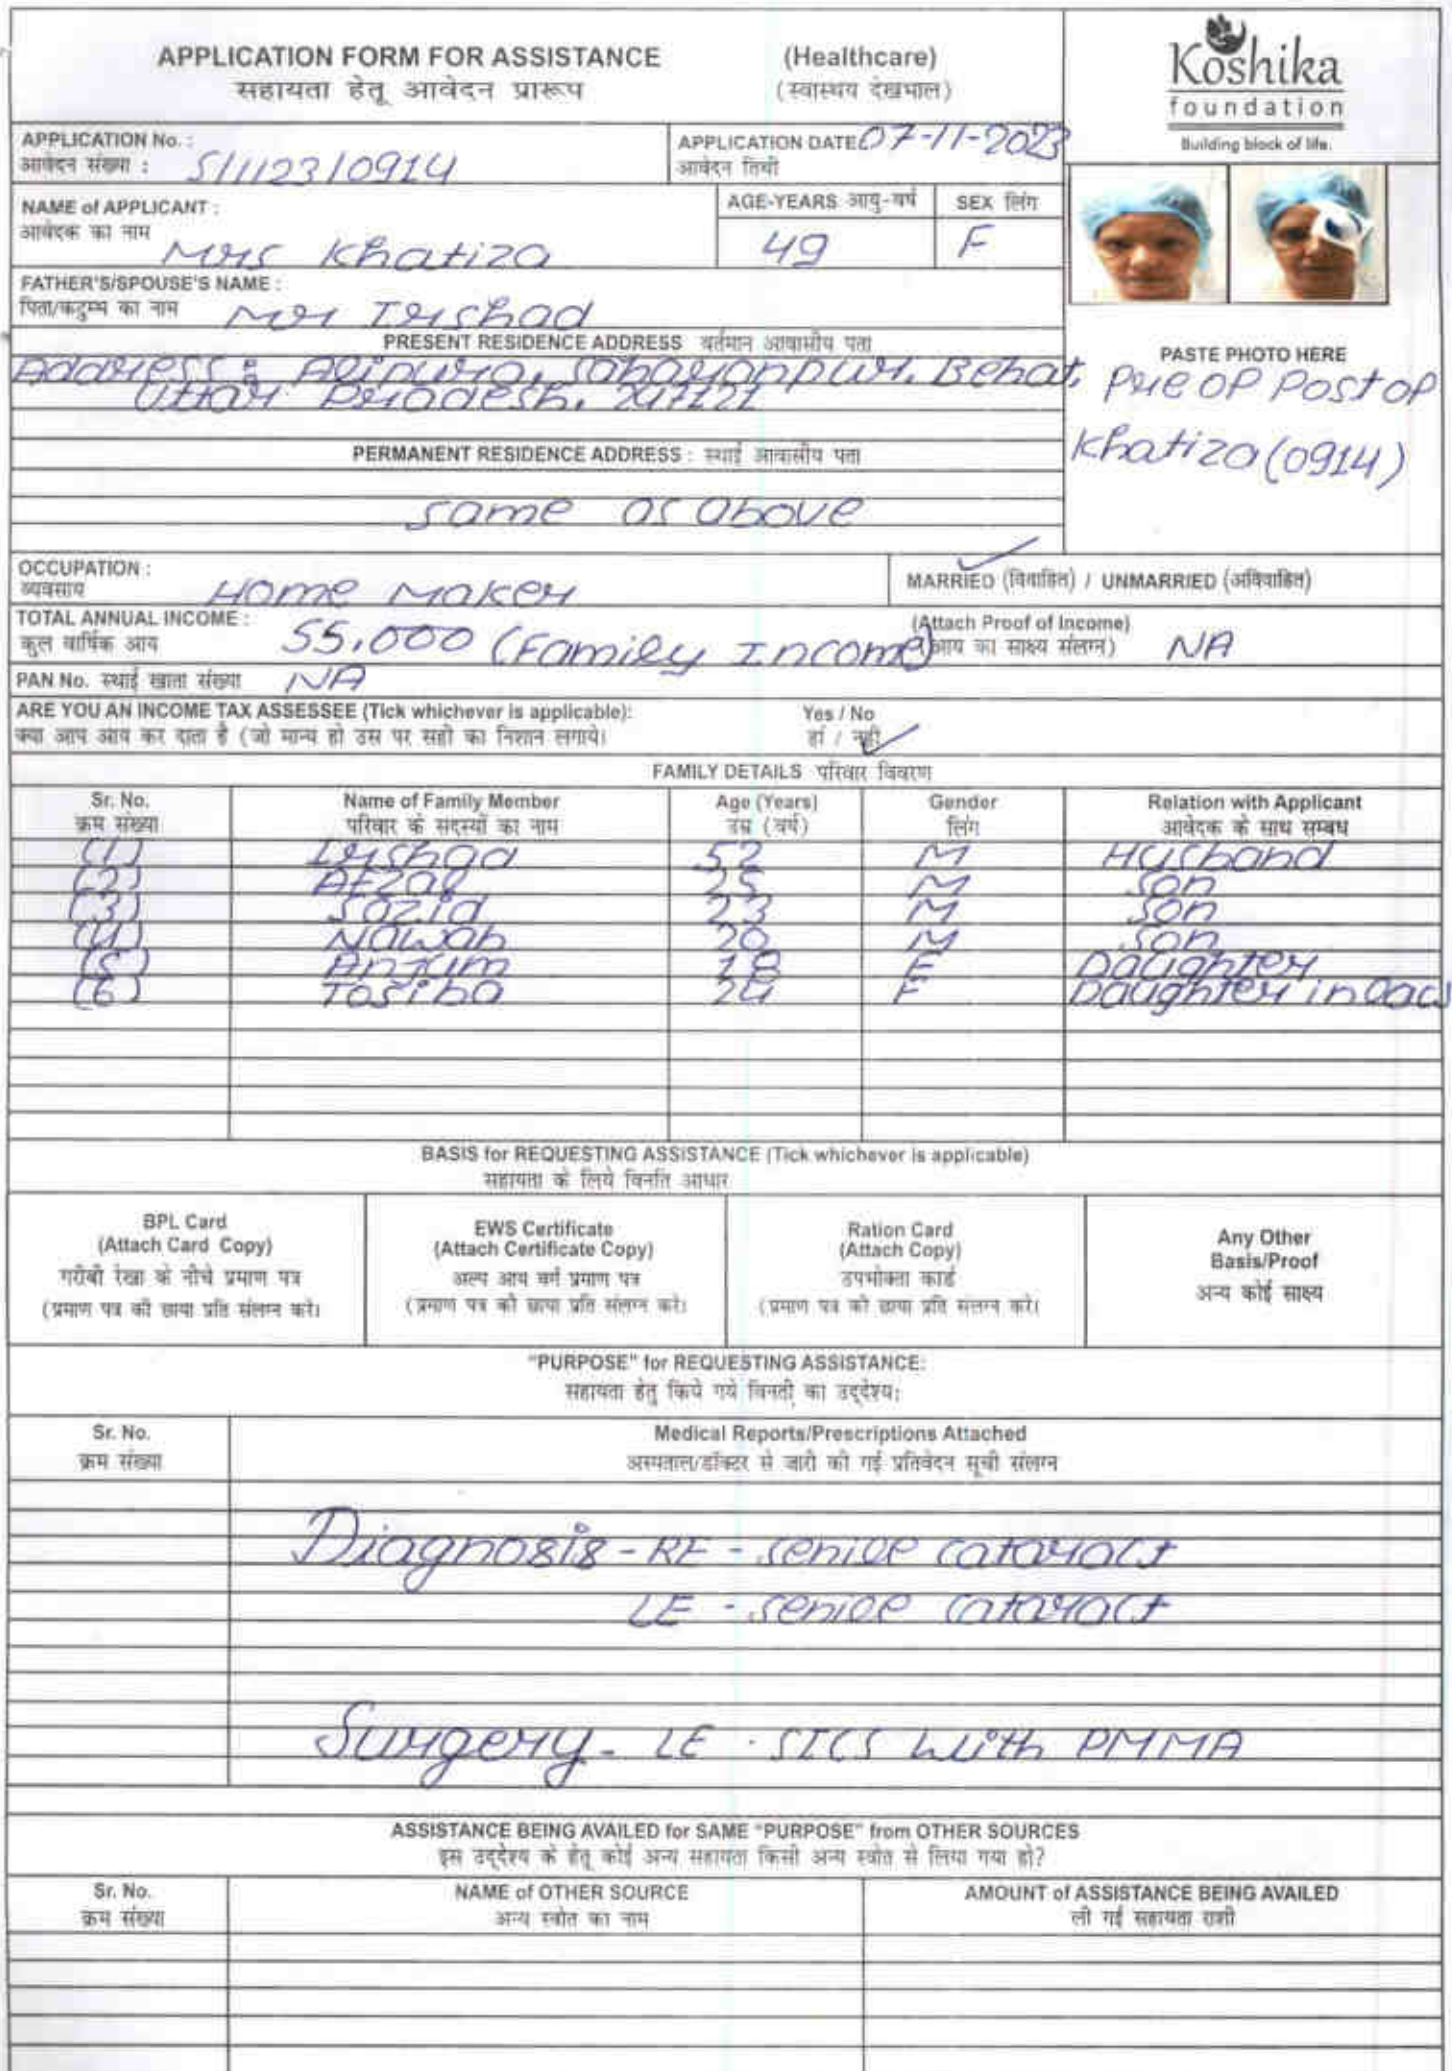 APPLICATION FORM FOR ASSISTANCE (Healthcare)
सहायता हेतू आवेदन प्रारूप (स्वास्थय देखभाल)
Koshika
foundation
Building block of life.
APPLICATION No. : S/1123/0914
आवेदन संख्या :
APPLICATION DATE 07-11-2023
आवेदन तिथी
NAME of APPLICANT : Mrs Khatiza
आवेदक का नाम
AGE-YEARS आयु-वर्ष 49
SEX लिंग F
FATHER'S/SPOUSE'S NAME : Mr Irshad
पिता/कटुम्भ का नाम
PRESENT RESIDENCE ADDRESS वर्तमान आवासीय पता
Address : Alipura, Saharanpur, Behat,
Uttar Pradesh, 247121
PASTE PHOTO HERE
Pre op Post op
Khatiza (0914)
PERMANENT RESIDENCE ADDRESS : स्थाई आवासीय पता
same as above
OCCUPATION : Home Maker
व्यवसाय
MARRIED (विवाहित) / UNMARRIED (अविवाहित)
TOTAL ANNUAL INCOME : 55,000 (Family Income)
कुल वार्षिक आय
(Attach Proof of Income) NA
(आय का साक्ष्य संलग्न)
PAN No. स्थाई खाता संख्या NA
ARE YOU AN INCOME TAX ASSESSEE (Tick whichever is applicable): Yes / No
क्या आप आय कर दाता है (जो मान्य हो उस पर सही का निशान लगाये। हां / नहीं
FAMILY DETAILS परिवार विवरण
Sr. No. Name of Family Member Age (Years) Gender Relation with Applicant
क्रम संख्या परिवार के सदस्यों का नाम उम्र (वर्ष) लिंग आवेदक के साथ सम्बध
(1) Irshad 52 M Husband
(2) Afzal 25 M Son
(3) Sazid 23 M Son
(4) Nawab 20 M Son
(5) Anjum 18 F Daughter
(6) Tasiba 24 F Daughter in law
BASIS for REQUESTING ASSISTANCE (Tick whichever is applicable)
सहायता के लिये विनति आधार
BPL Card
(Attach Card Copy)
गरीबी रेखा के नीचे प्रमाण पत्र
(प्रमाण पत्र की छाया प्रति संलग्न करे।
EWS Certificate
(Attach Certificate Copy)
अल्प आय वर्ग प्रमाण पत्र
(प्रमाण पत्र की छाया प्रति संलग्न करे।
Ration Card
(Attach Copy)
उपभोक्ता कार्ड
(प्रमाण पत्र की छाया प्रति संलग्न करे।
Any Other
Basis/Proof
अन्य कोई साक्ष्य
"PURPOSE" for REQUESTING ASSISTANCE:
सहायता हेतु किये गये विनती का उद्देश्य:
Sr. No. Medical Reports/Prescriptions Attached
क्रम संख्या अस्पताल/डॉक्टर से जारी की गई प्रतिवेदन सूची संलग्न
Diagnosis - RE - senile cataract
LE - senile cataract
Surgery - LE - SICS with PMMA
ASSISTANCE BEING AVAILED for SAME "PURPOSE" from OTHER SOURCES
इस उद्देश्य के हेतू कोई अन्य सहायता किसी अन्य स्त्रोत से लिया गया हो?
Sr. No. NAME of OTHER SOURCE AMOUNT of ASSISTANCE BEING AVAILED
क्रम संख्या अन्य स्त्रोत का नाम ली गई सहायता राशी